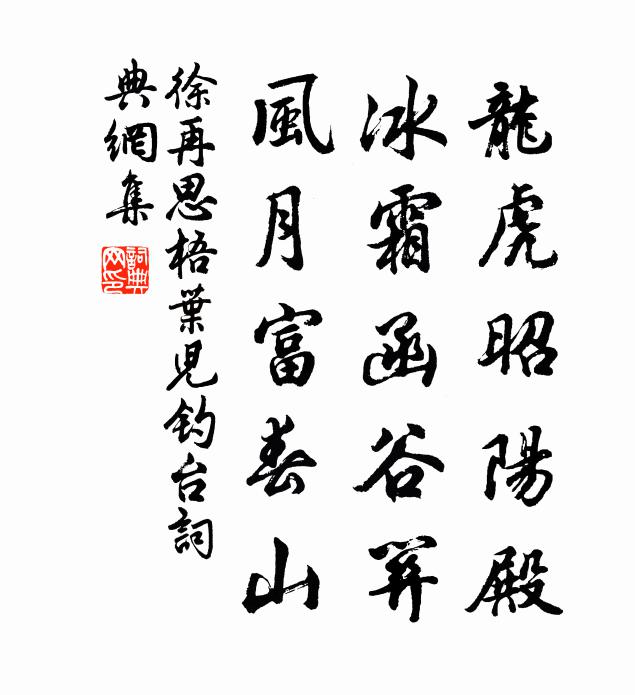 龍虎昭陽殿
冰霜函谷關
風月富春山
徐再思梧葉兒釣台詞
典網集
詞典
网印